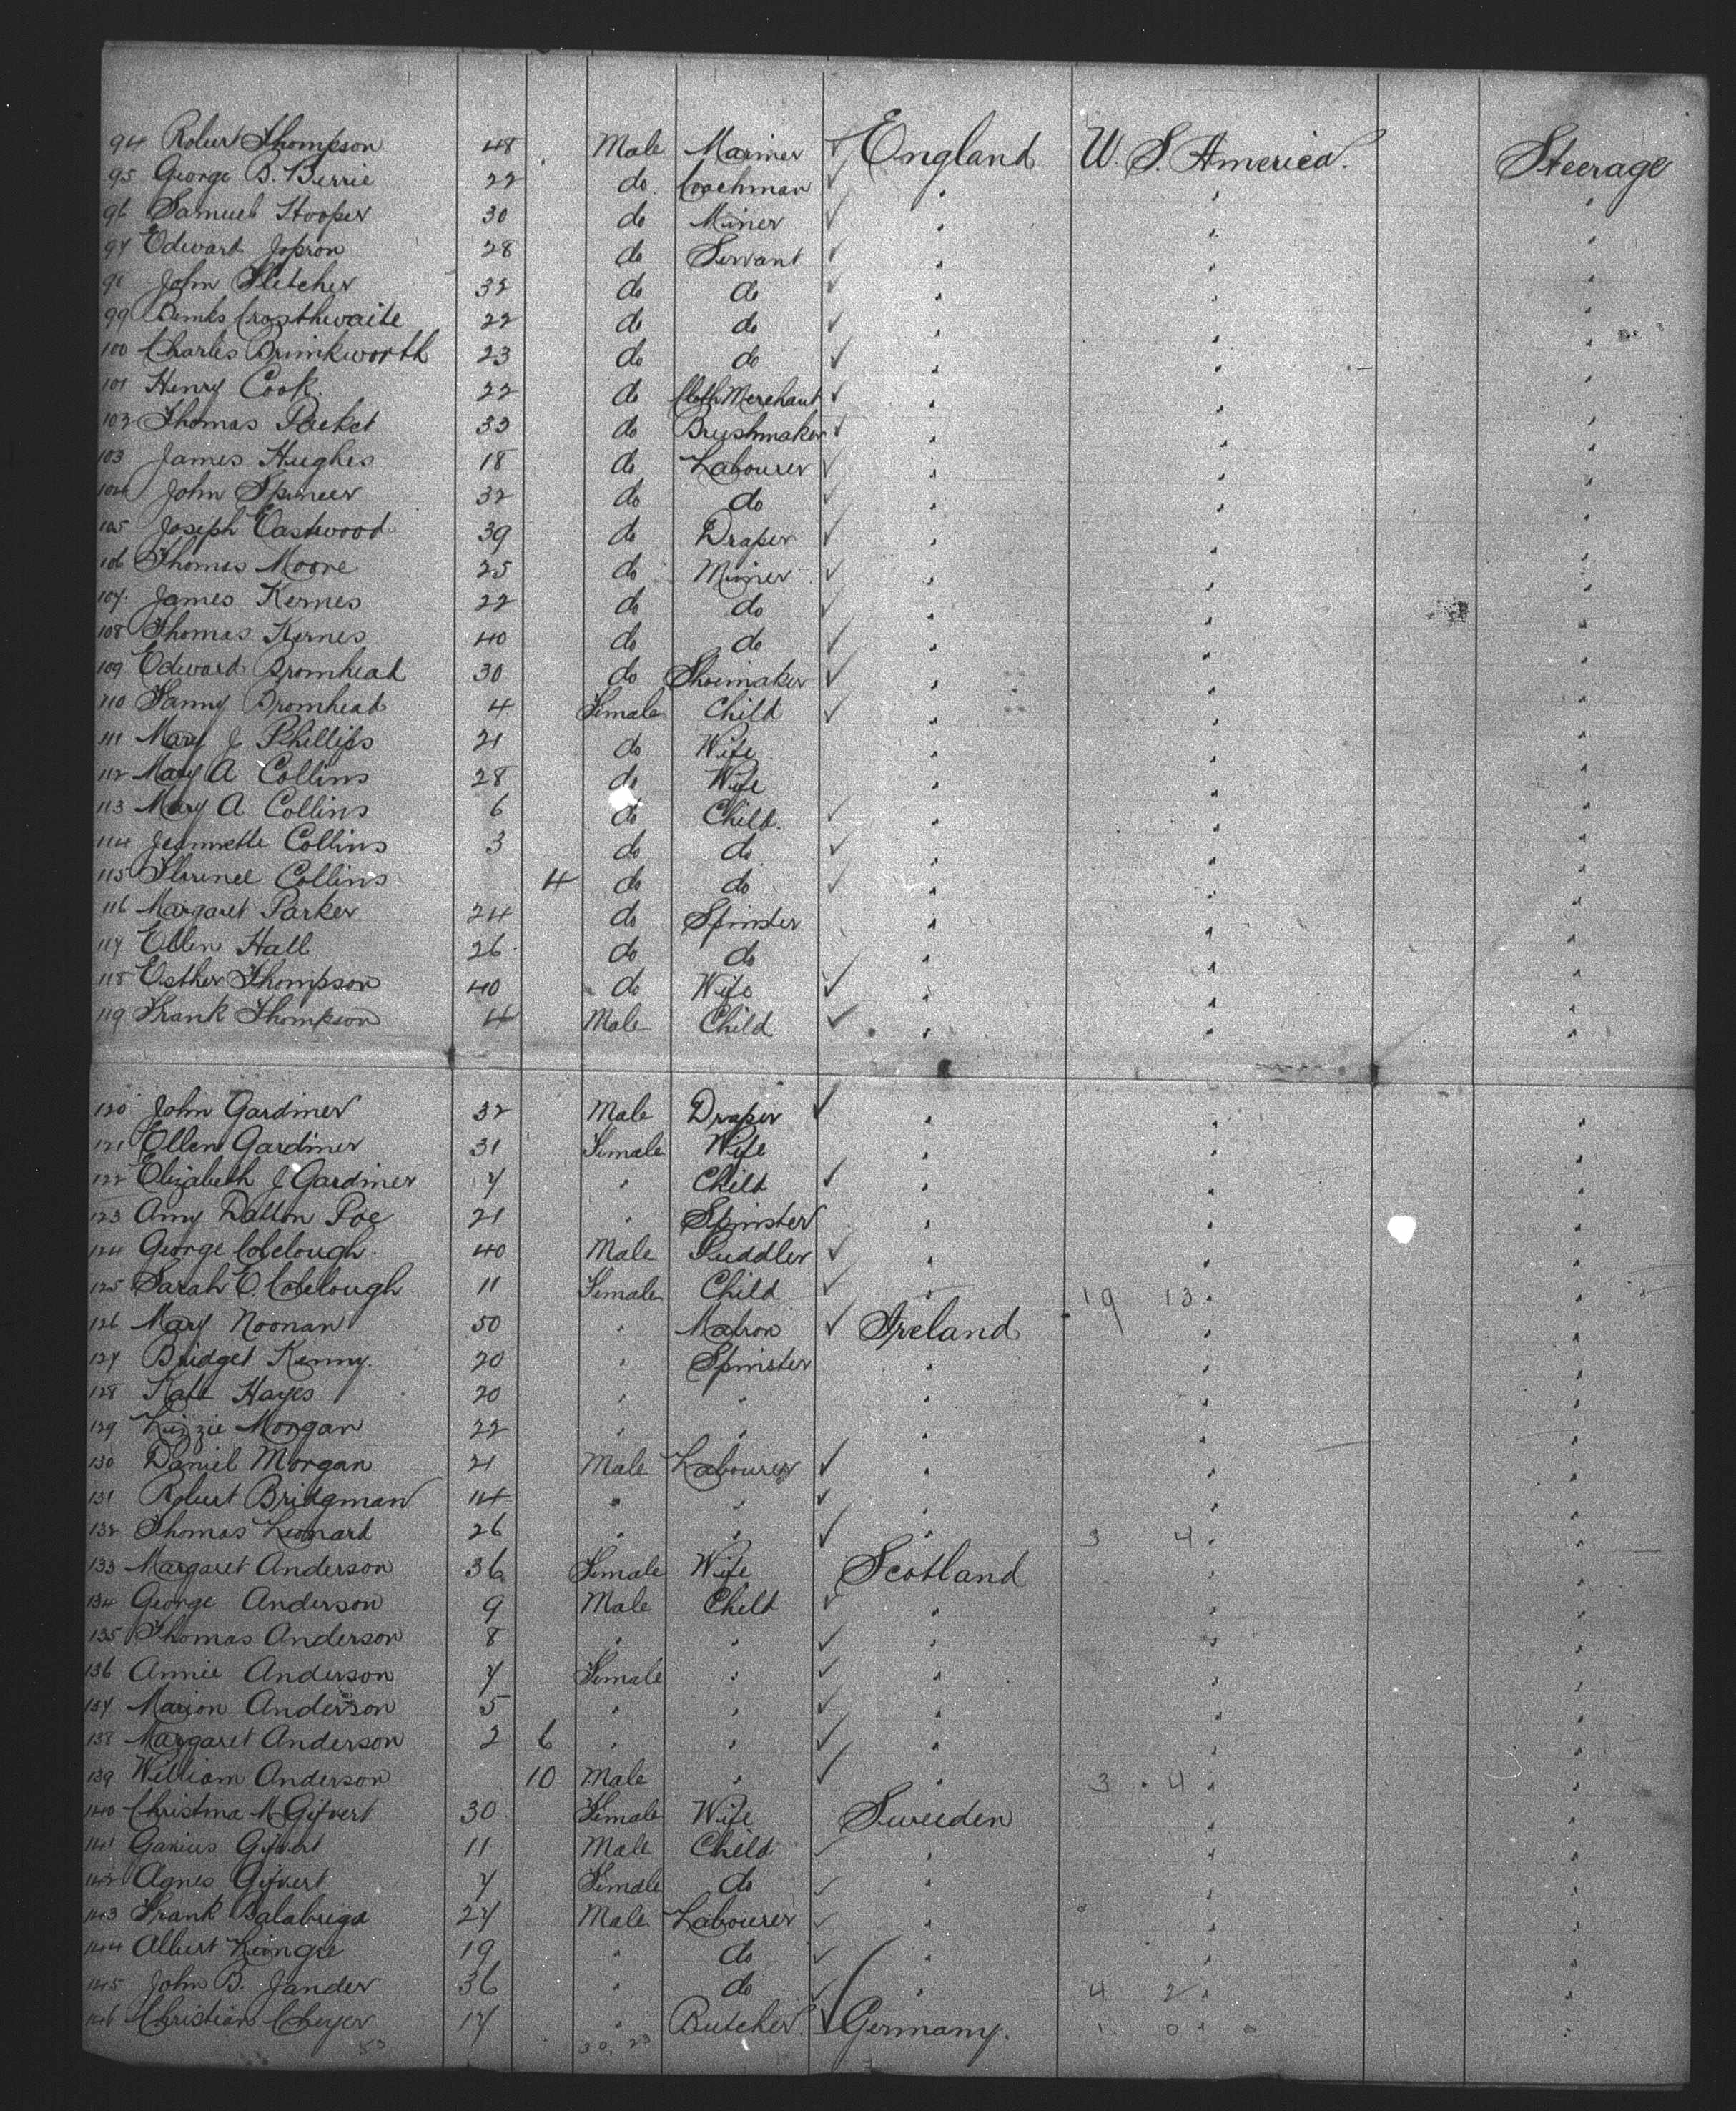 94 Robert Thompson 48 Male Mariner ✓ England U. S. America. Steerage
95 George B. Berrie 22 do. Coachman ✓ " " "
96 Samuel Hooper 30 do Miner ✓ " " "
97 Edward Jopson 28 do Servant ✓ " " "
98 John Fletcher 32 do do ✓ " " "
99 Crosthwaite 22 do do ✓ " " "
100 Charles Brinkworth 23 do do ✓ " " "
101 Henry Cook 22 do Cloth Merchant ✓ " " "
102 Thomas Packet 33 do Brushmaker ✓ " " "
103 James Hughes 18 do Labourer ✓ " " "
104 John Spencer 32 do do ✓ " " "
105 Joseph Eastwood 39 do Draper ✓ " " "
106 Thomas Moore 25 do Miner ✓ " " "
107 James Kernes 22 do do ✓ " " "
108 Thomas Kernes 40 do do ✓ " " "
109 Edward Bromhead 30 do Shoemaker ✓ " " "
110 Fanny Bromhead 4 Female Child ✓ " " "
111 Mary J Phillips 21 do Wife " " "
112 Mary A Collins 28 do Wife " " "
113 Mary A Collins 6 do Child. ✓ " " "
114 Jeannette Collins 3 do do ✓ " " "
115 Florence Collins 4 do do ✓ " " "
116 Margaret Parker 24 do Spinster " " "
117 Ellen Hall 26 do do " " "
118 Esther Thompson 40 do Wife ✓ " " "
119 Frank Thompson 4 Male Child ✓ " " "
120 John Gardiner 32 Male Draper ✓ " " "
121 Ellen Gardiner 31 Female Wife " " "
122 Elizabeth J Gardiner 7 " Child ✓ " " "
123 Amy Dalton Poe 21 " Spinster " " "
124 George Colclough 40 Male Puddler ✓ " " "
125 Sarah E. Colclough 11 Female Child ✓ " 19 13 " "
126 Mary Noonan 50 " Matron ✓ Ireland " "
127 Bridget Kenny. 20 " Spinster " " "
128 Kate Hayes 20 " " " " "
129 Lizzie Morgan 22 " " " " "
130 Daniel Morgan 21 Male Labourer ✓ " " "
131 Robert Bridgman 14 " " ✓ " " "
132 Thomas Leonard 26 " " ✓ " 3 4 " "
133 Margaret Anderson 36 Female Wife Scotland " "
134 George Anderson 9 Male Child ✓ " " "
135 Thomas Anderson 8 " " ✓ " " "
136 Annie Anderson 7 Female " ✓ " " "
137 Marion Anderson 5 " " ✓ " " "
138 Margaret Anderson 2 6 " " ✓ " " "
139 William Anderson 10 Male " ✓ " 3 4 " "
140 Christina M Gifvert 30 Female Wife Sweeden " "
141 Gifvert 11 Male Child ✓ " " "
142 Agnes Gifvert 7 Female do ✓ " " "
143 Frank Balabriga 27 Male Labourer ✓ " " "
144 Albert 19 " do ✓ " " "
145 John B. Jander 36 " do ✓ " 4 2 " "
146 Christian 17 " Butcher. ✓ Germany. 1 0 " "